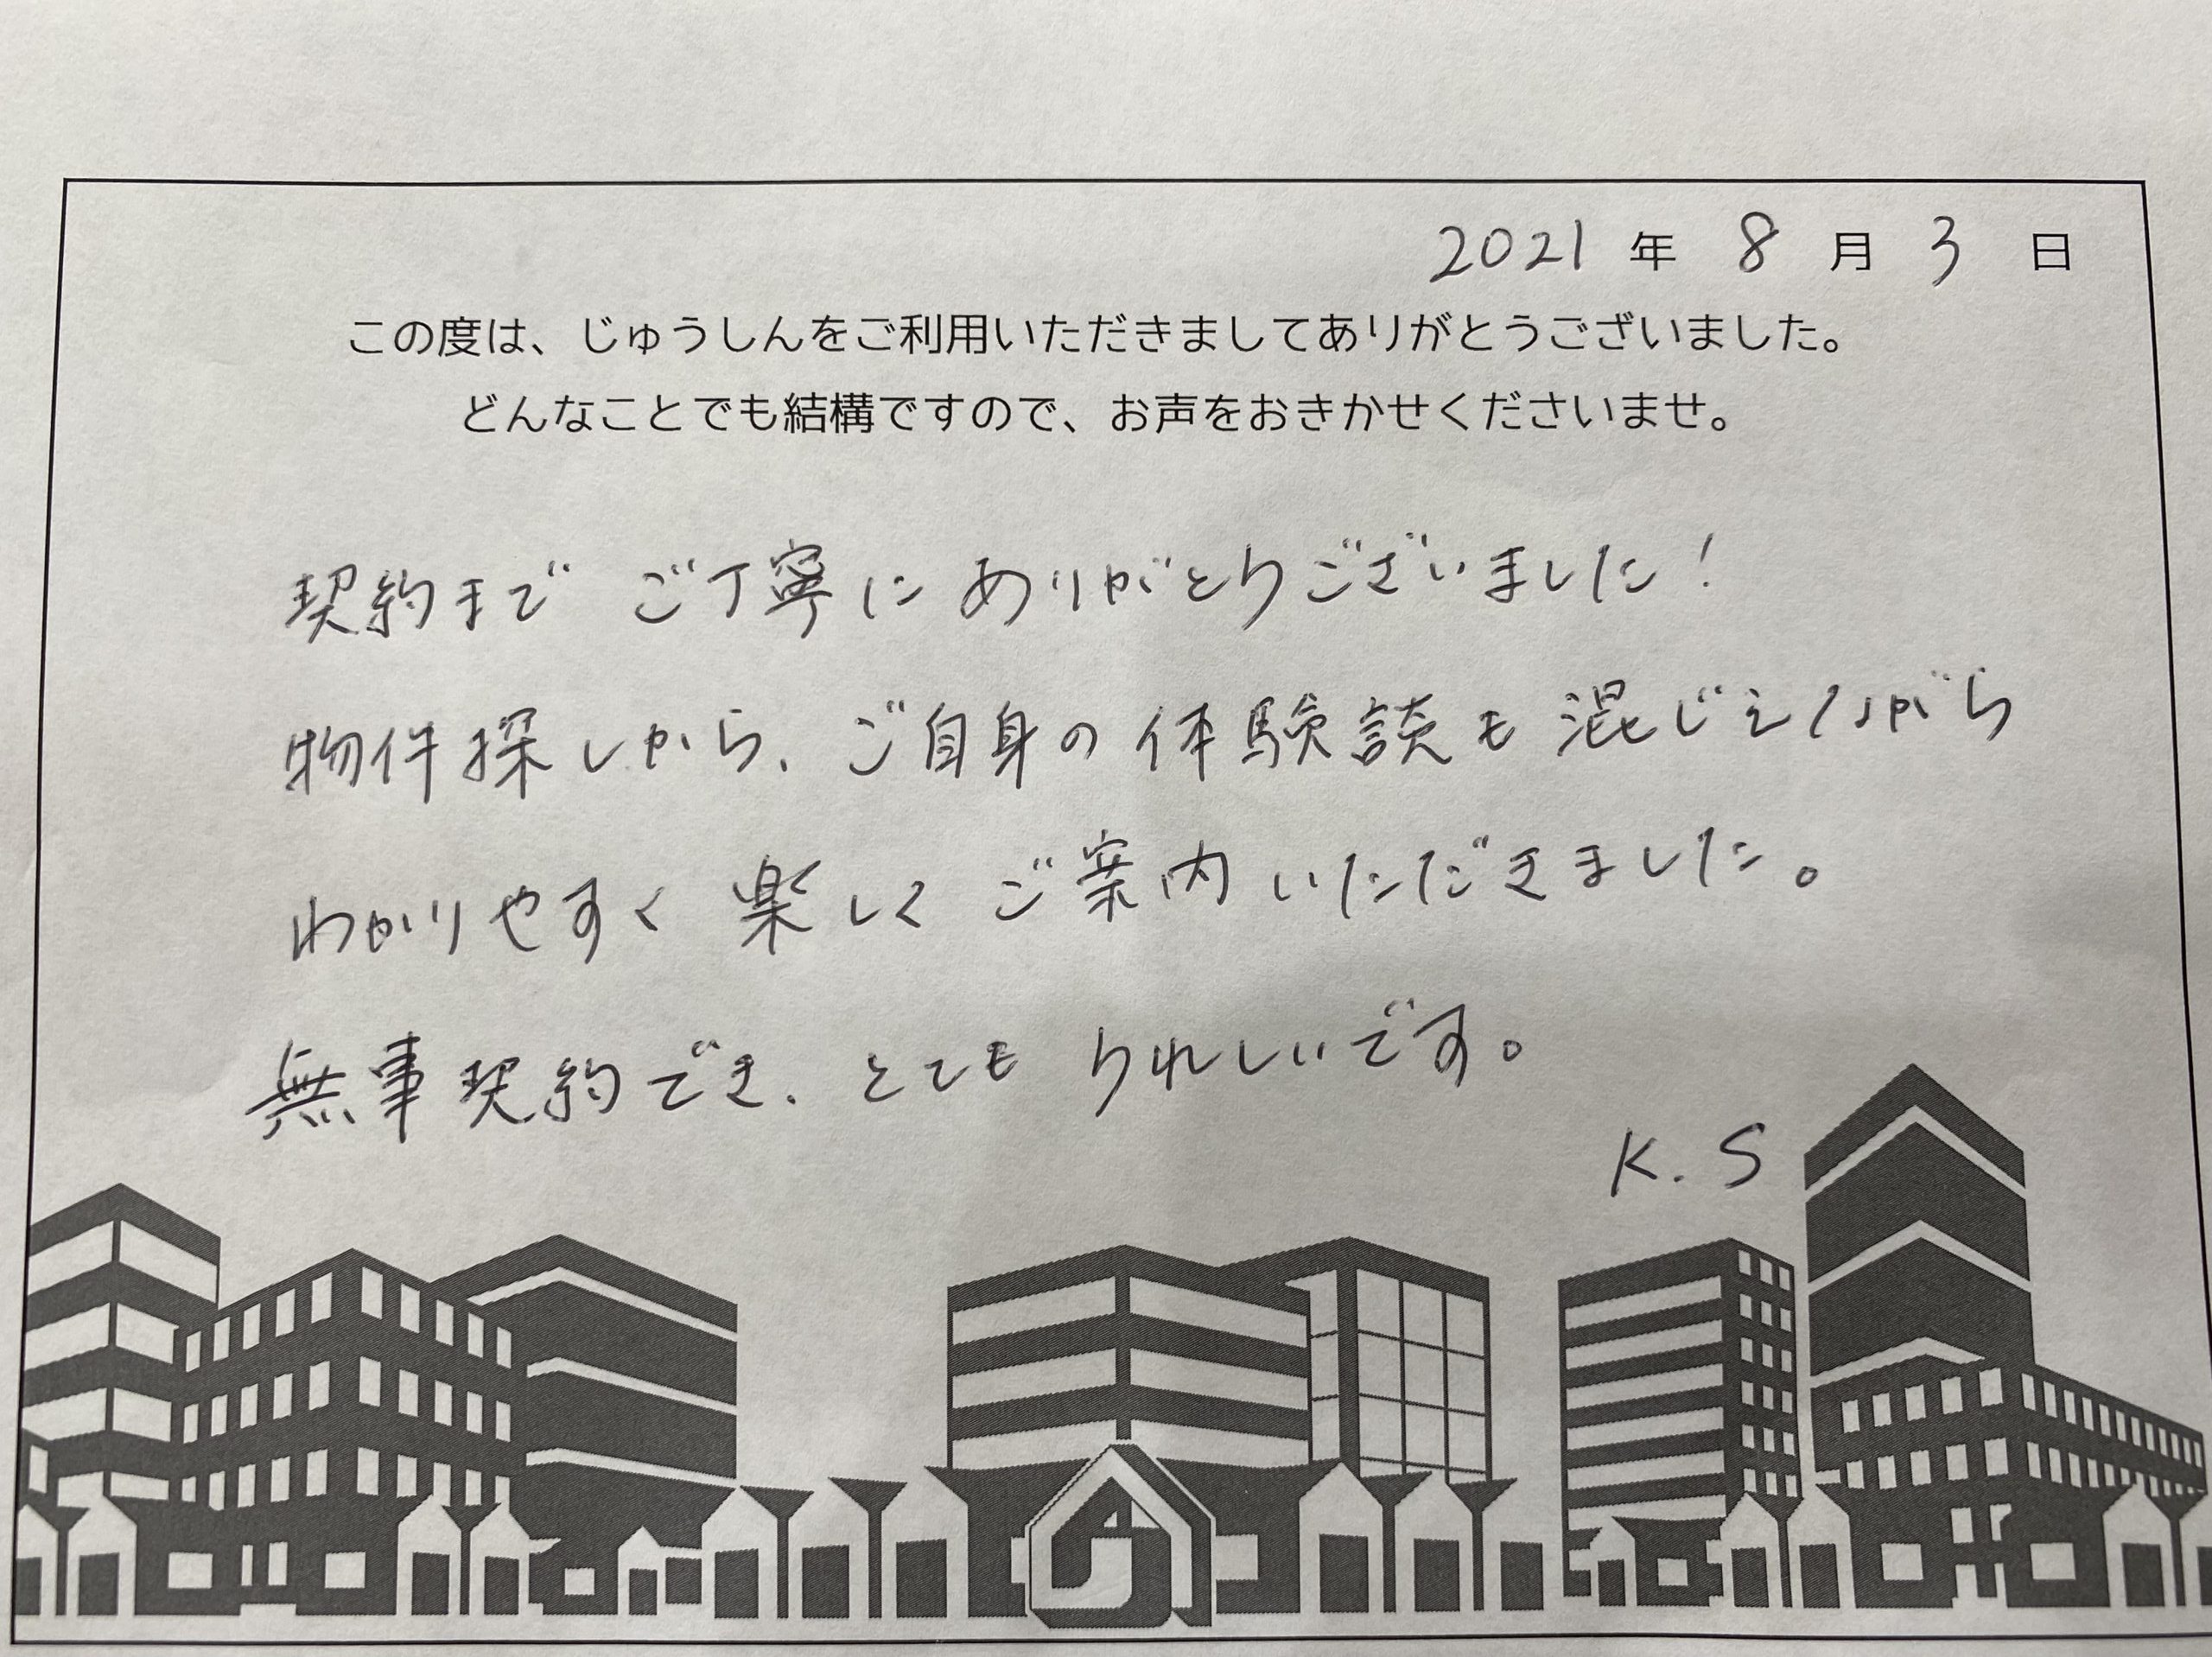 2021 年 8 月 3 日
この度は、じゅうしんをご利用いただきましてありがとうございました。
どんなことでも結構ですので、お声をおきかせくださいませ。
契約まで ご丁寧に ありがとうございました!
物件探しから、ご自身の体験談も混じえながら
わかりやすく楽しくご案内いただきました。
無事契約でき、とてもうれしいです。
K.S